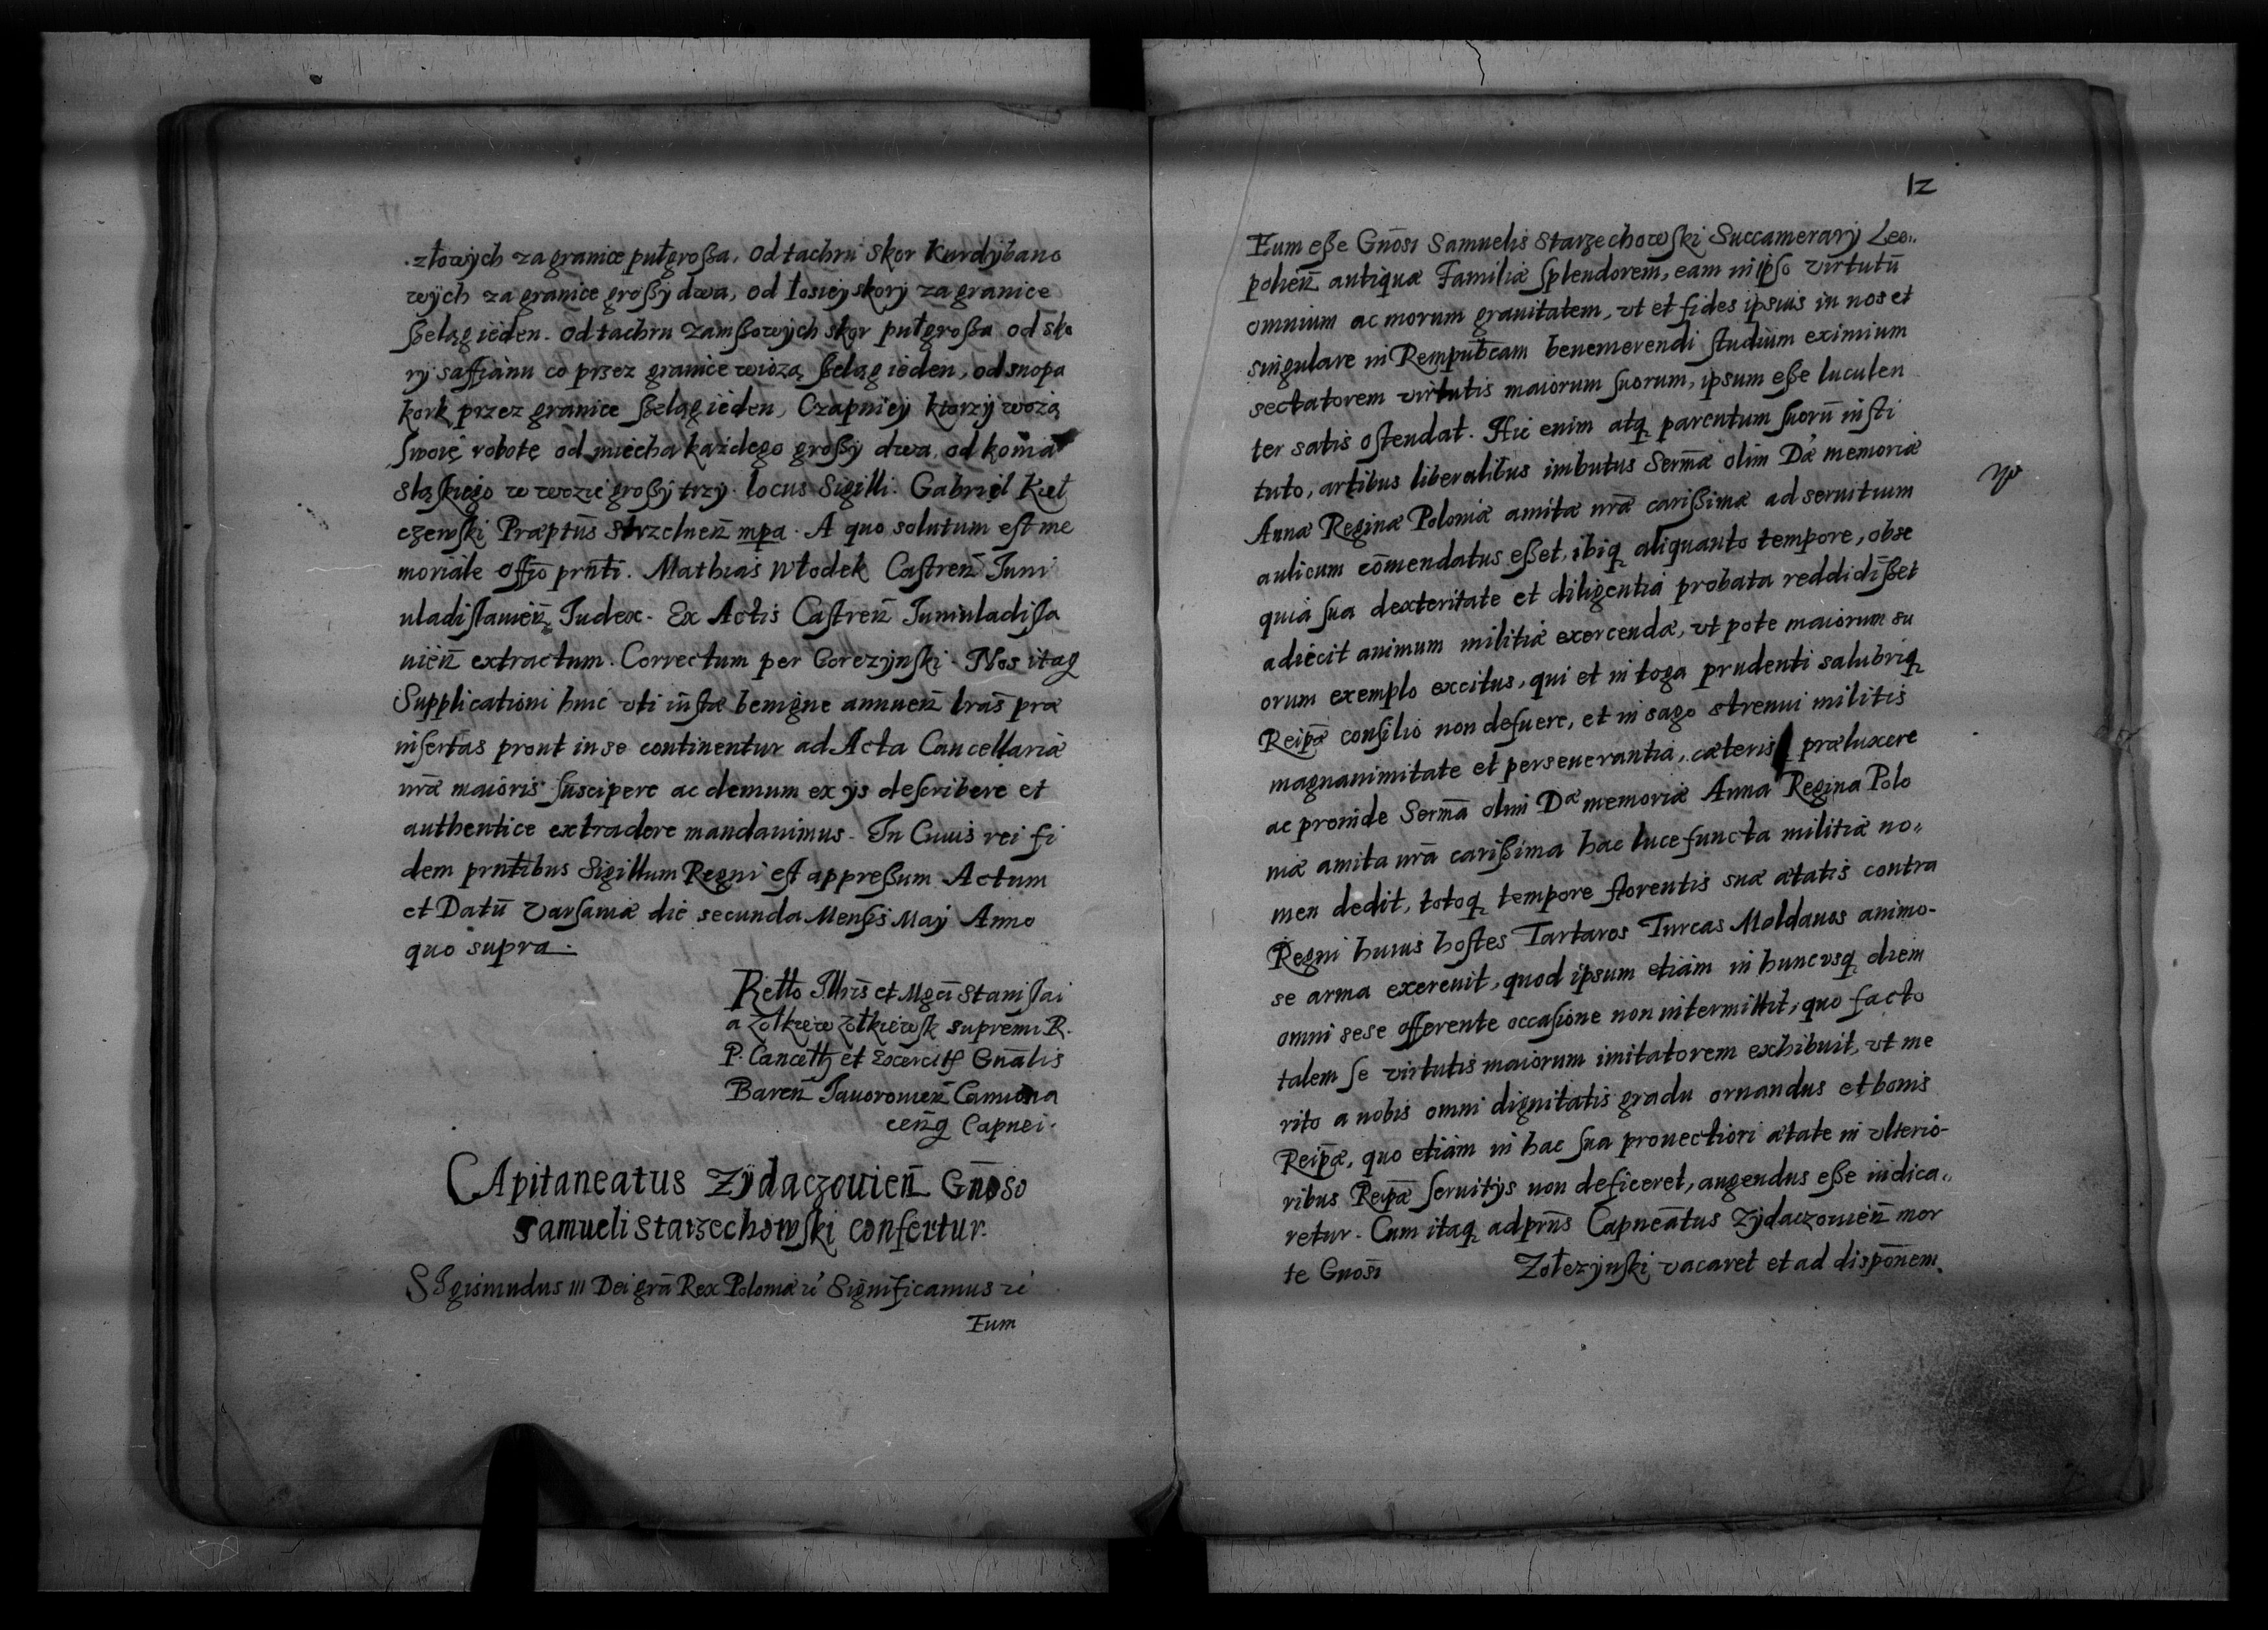 złowÿch za granice pułgroßa, od tachru skor Kurdÿbano
wÿch za granice großÿ dwa, od łosieÿ skorÿ za granice
ßeląg ieden. od tachru zamßowÿch skor pułgroßa od sko
rÿ saffianu co przez granice wiozą ßeląg ieden, od snopa
kork przez granice ßeląg ieden, Czapnieÿ ktorzÿ wożą
swoię robotę od miecha każdego großÿ dwa, od
sląskiego w wozie großÿ trzÿ. locus Sigilli. Gabriel Kieł
czewski Præptūs Strzelneñ mpa. A quo solutum est me
moriale offio prñti. Mathias Włodek Castreñ Juni
uladislauieñ Judex. Ex Actis Castreñ Juniuladisla
uieñ extractum. Correctum per Gorczÿnski. Nos itaq
Supplicationi huic vti iustæ benigne annueñ lrās præ
insertas prout in se continentur ad Acta Cancellariæ
nrǣ maioris suscipere ac demum ex ÿs describere et
authentice extradere mandauimus. In Cuius rei fi
dem prñtibus Sigillum Regni est appreßum Actum
et Datū Varsauiæ die secunda Mensis Maÿ Anno
quo supra.
Retto Illris et Mgci Stanislai
a Zołkiew Zołkiewsk supremi R.
P. Cancell et Exercit Gnālis
Bareñ Jauorouieñ Camiena
ceñq Capnei.
CApitaneatus Zÿdaczouieñ Gñoso
Samueli Starzechowski confertur.
SIgismundus III Dei grā Rex Poloniæ Significamus
Eum
12
Eum eße Gñosi Samuelis Starzechowski Succamerarÿ Leo,,
polieñ antiquæ Familiæ splendorem, eam in ipso virtutū
omnium ac morum grauitatem, vt et fides ipsius in nos et
singulare in Rempubcam benemerendi studium eximium
sectatorem virtutis maiorum suorum, ipsum eße luculen
ter satis ostendat. Hic enim atq parentum suorū insti
tuto, artibus liberalibus imbutus Sermæ olim Dæ memoriæ
Annæ Reginæ Poloniæ amitæ nrǣ carißimæ ad seruitium
aulicum cōmendatus eßet, ibiq aliquanto tempore, obse
quia sua dexteritate et diligentia probata reddidißet
adiecit animum militiæ exercendæ, vt pote maiorum su
orum exemplo excitus, qui et in toga prudenti salubriq
Reipæ consilio non defuere, et in sago strenui militis
magnanimitate et perseuerantia, cæteris præluxere
ac proinde Serma olim Dæ memoriæ Anna Regina Polo
niæ amita nrā carißima hac luce functa militiæ no,,
men dedit, totoq tempore florentis suæ ætatis contra
Regni huius hostes Tartaros Turcas Moldauos animo-
se arma exercuit, quod ipsum etiam in huncvsq diem
omni sese offerente occasione non intermittit, quo facto
talem se virtutis maiorum imitatorem exhibuit, vt me
rito a nobis omni dignitatis gradu ornandus et bonis
Reipæ, quo etiam in hac sua prouectiori ætate in vlterio-
ribus Reipæ seruitÿs non deficeret, augendus eße iudica,,
retur. Cum itaq ad prñs Capneātus Zÿdaczouieñ mor
te Gnosi Zołczÿnski vacaret et ad dispōnem